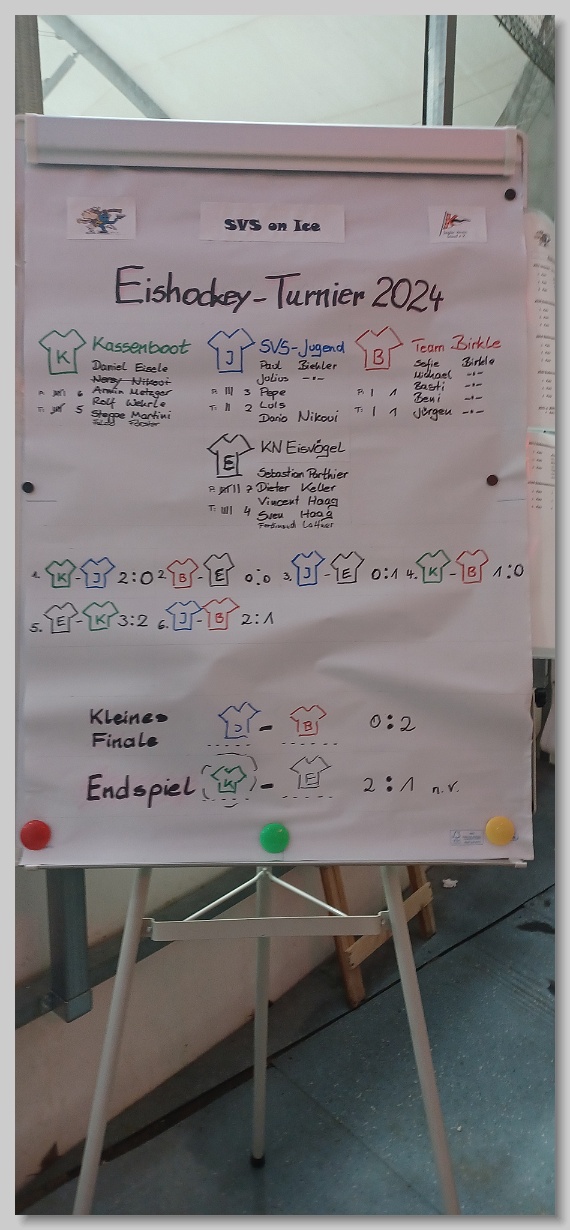 SVS on Ice
Eishockey-Turnier 2024
K Kassenboot
Daniel Eisele
Nikoui
P: 6 Armin Metzger
T: 5 Rolf Wehrle
Steppe Martini
J SVS-Jugend
Paul Biehler
Julius -"-
P: III 3 Pepe
T: II 2 Luis
Dario Nikoui
B Team Birkle
Sofie Birkle
Michael -"-
Basti -"-
P: I 1 Beni -"-
T: I 1 Jürgen -"-
E KN Eisvögel
Sebastian Parthier
P: 7 Dieter Keller
Vincent Haag
T: IIII 4 Sven Haag
Ferdinand
1. K - J 2:0 2. B - E 0:0 3. J - E 0:1 4. K - B 1:0
5. E - K 3:2 6. J - B 2:1
Kleines J - B 0:2
Finale
Endspiel K - E 2:1 n.V.